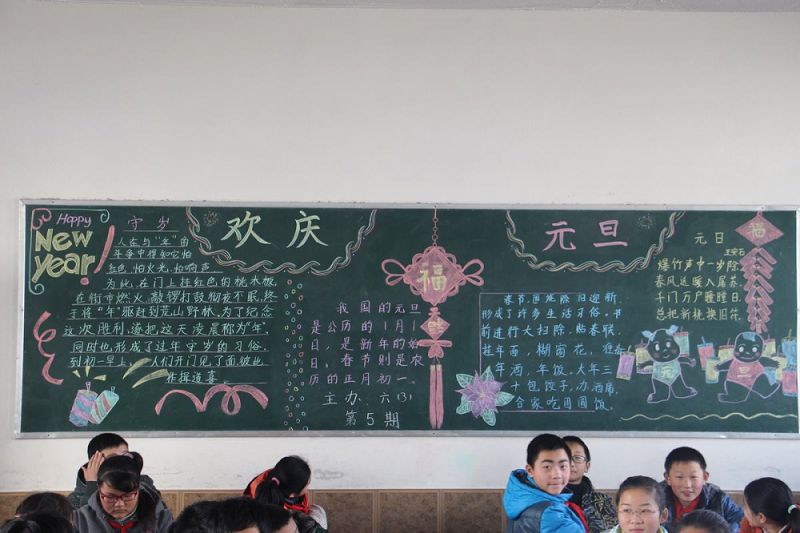 Happy
New
year!
守岁
人在与"年"的
斗争中得知它怕
红色、怕火光、怕响声
为此,在门上挂红色的桃木板,
在街市燃火,敲锣打鼓彻夜不眠,终
于将"年"驱赶到荒山野林,为了纪念
这次胜利,遂把这天凌晨称为"年",
同时也形成了过年守岁的习俗,
到初一早上,人们开门见了面,彼此
作揖道喜。
欢庆
我国的元旦
是公历的1月1
日,是新年的始
日,春节则是农
历的正月初一。
主办:六(3)
第5期
福
元旦
春节,
辞旧迎新,
形成了许多生活习俗。节
前进行大扫除,贴春联,
挂年画,糊窗花,
年酒、年饭、大年三
十包饺子,办酒席,
合家吃团圆饭。
元日
王安石
爆竹声中一岁除,
春风送暖入屠苏。
千门万户曈曈日,
总把新桃换旧符。
福
元
旦